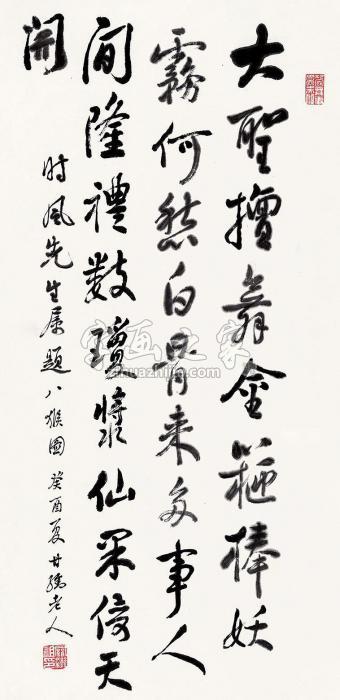 大聖擅舞金箍棒妖
霧何愁白骨来多事人
间隆禮数瓊漿仙果倚天
開
时風先生属題八猴图 癸酉夏 老人